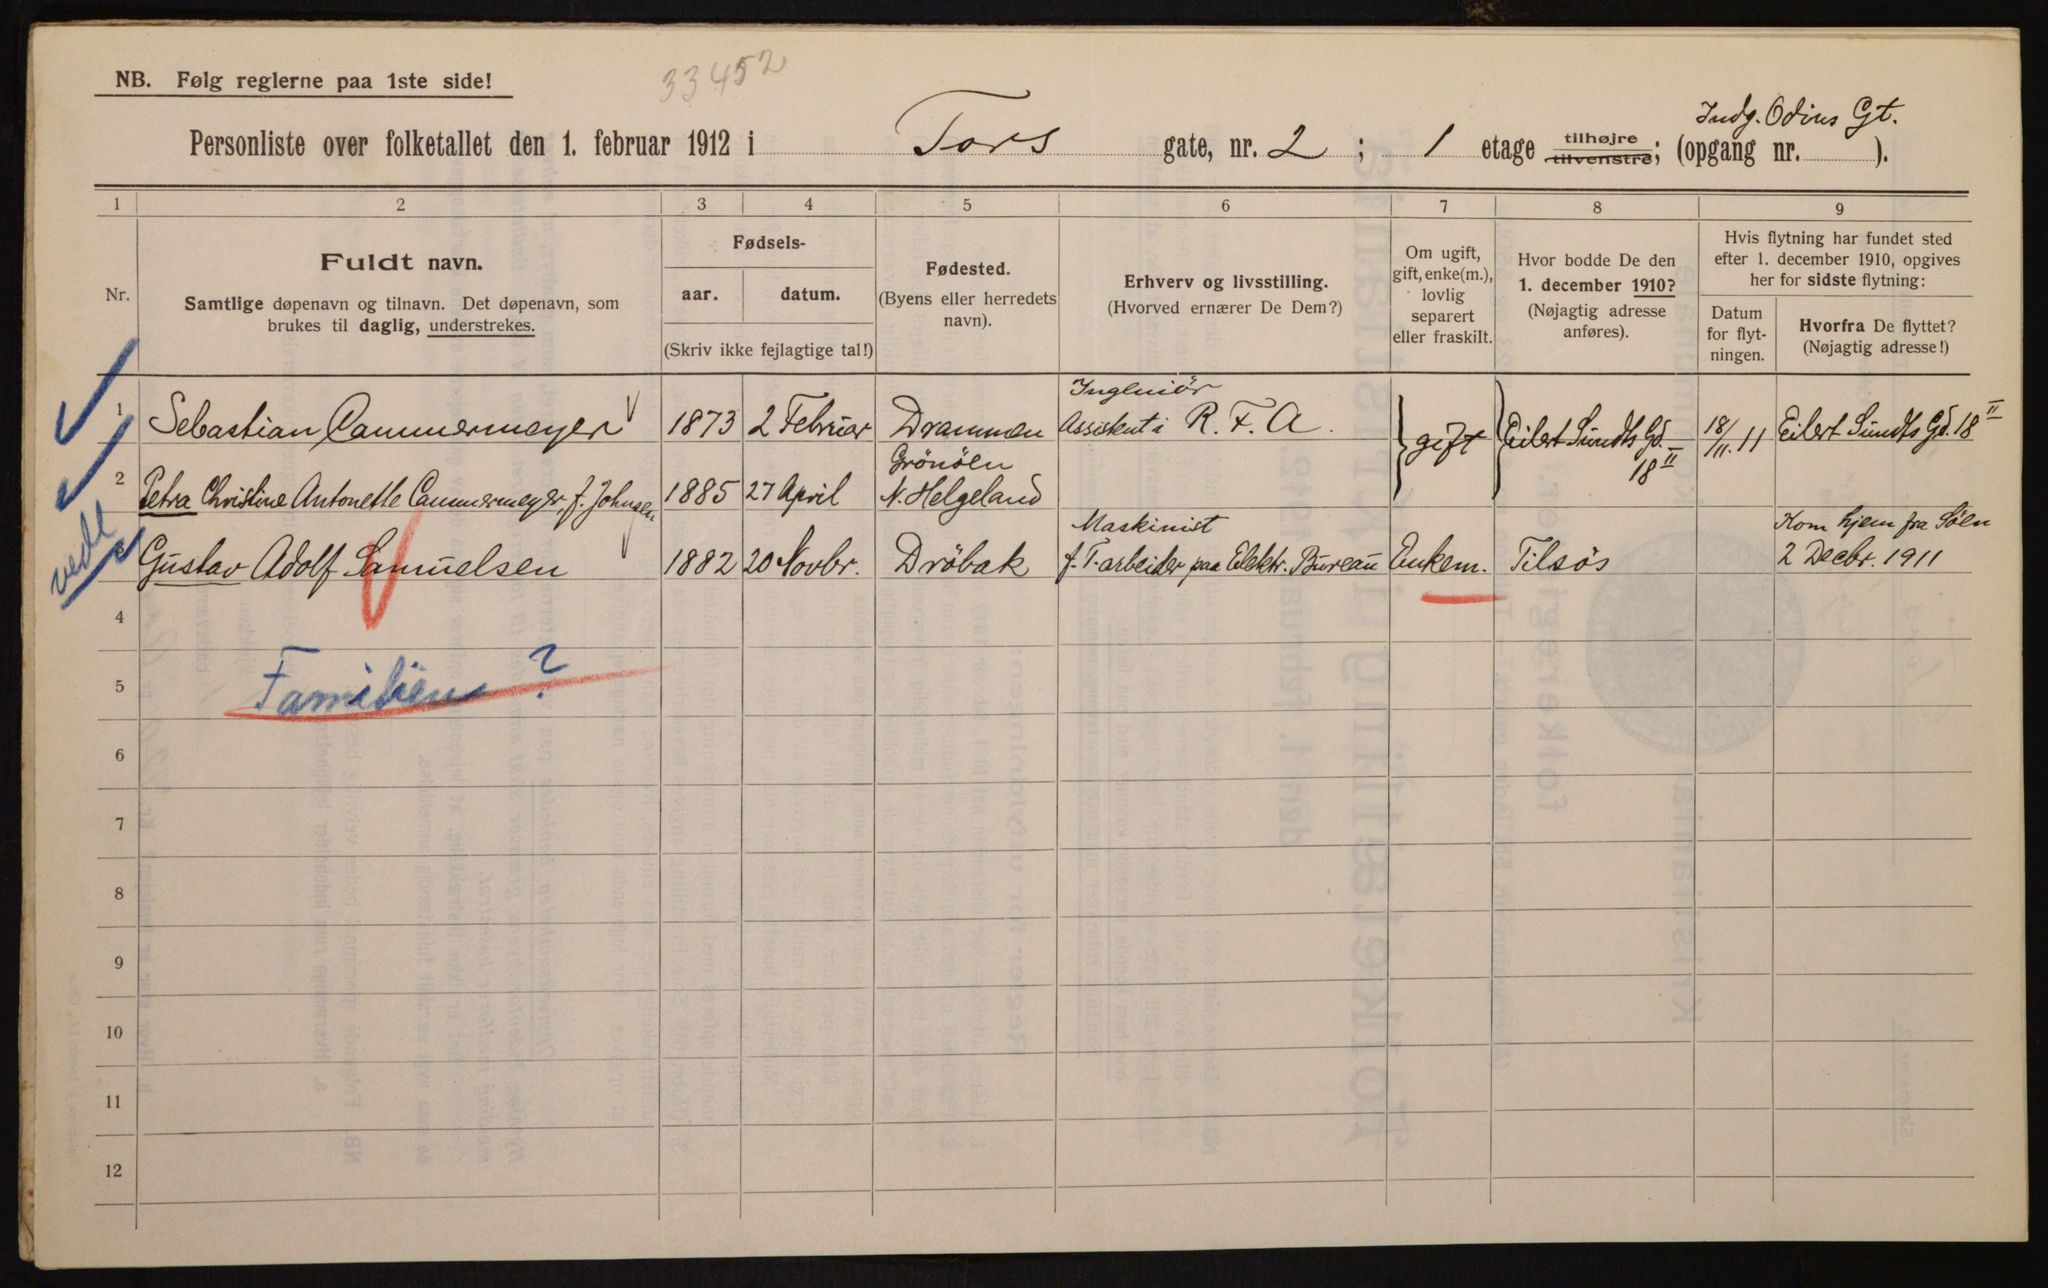 NB. Følg reglerne paa 1ste side!
33452
Indg. Odins Gt.
Personliste over folketallet den 1. februar 1912 i Tors gate, nr. 2 ; 1 etage tilhøjre tilvenstre; (opgang nr. ).
1 2 3 4 5 6 7 8 9
Nr.
Fuldt navn.
Samtlige døpenavn og tilnavn. Det døpenavn, som
brukes til daglig, understrekes.
Fødsels-
aar. datum.
(Skriv ikke fejlagtige tal!)
Fødested.
(Byens eller herredets
navn).
Erhverv og livsstilling.
(Hvorved ernærer De Dem?)
Om ugift,
gift, enke(m.),
lovlig
separert
eller fraskilt.
Hvor bodde De den
1. december 1910?
(Nøjagtig adresse
anføres).
Hvis flytning har fundet sted
efter 1. december 1910, opgives
her for sidste flytning:
Datum
for flyt-
ningen.
Hvorfra De flyttet?
(Nøjagtig adresse!)
1 Sebastian Cammermeyer 1873 2 Februar Drammen Ingeniör Assistent i R. F. A. gift Eilert Sundts Gd. 18 II 18/11. 11 Eilert Sundts Gd. 18 II
2 Petra Christine Antonette Cammermeyer, f. Johnsen 1885 27 April Grönöen N. Helgeland
vedl
3 Gustav Adolf Samuelsen 1882 20 Novbr. Dröbak Maskinist f. T. arbeider paa Elektr. Bureau Enkem. Tilsøs Kom hjem fra Söen 2 Decbr. 1911
4
Familien ?
5
6
7
8
9
10
11
12